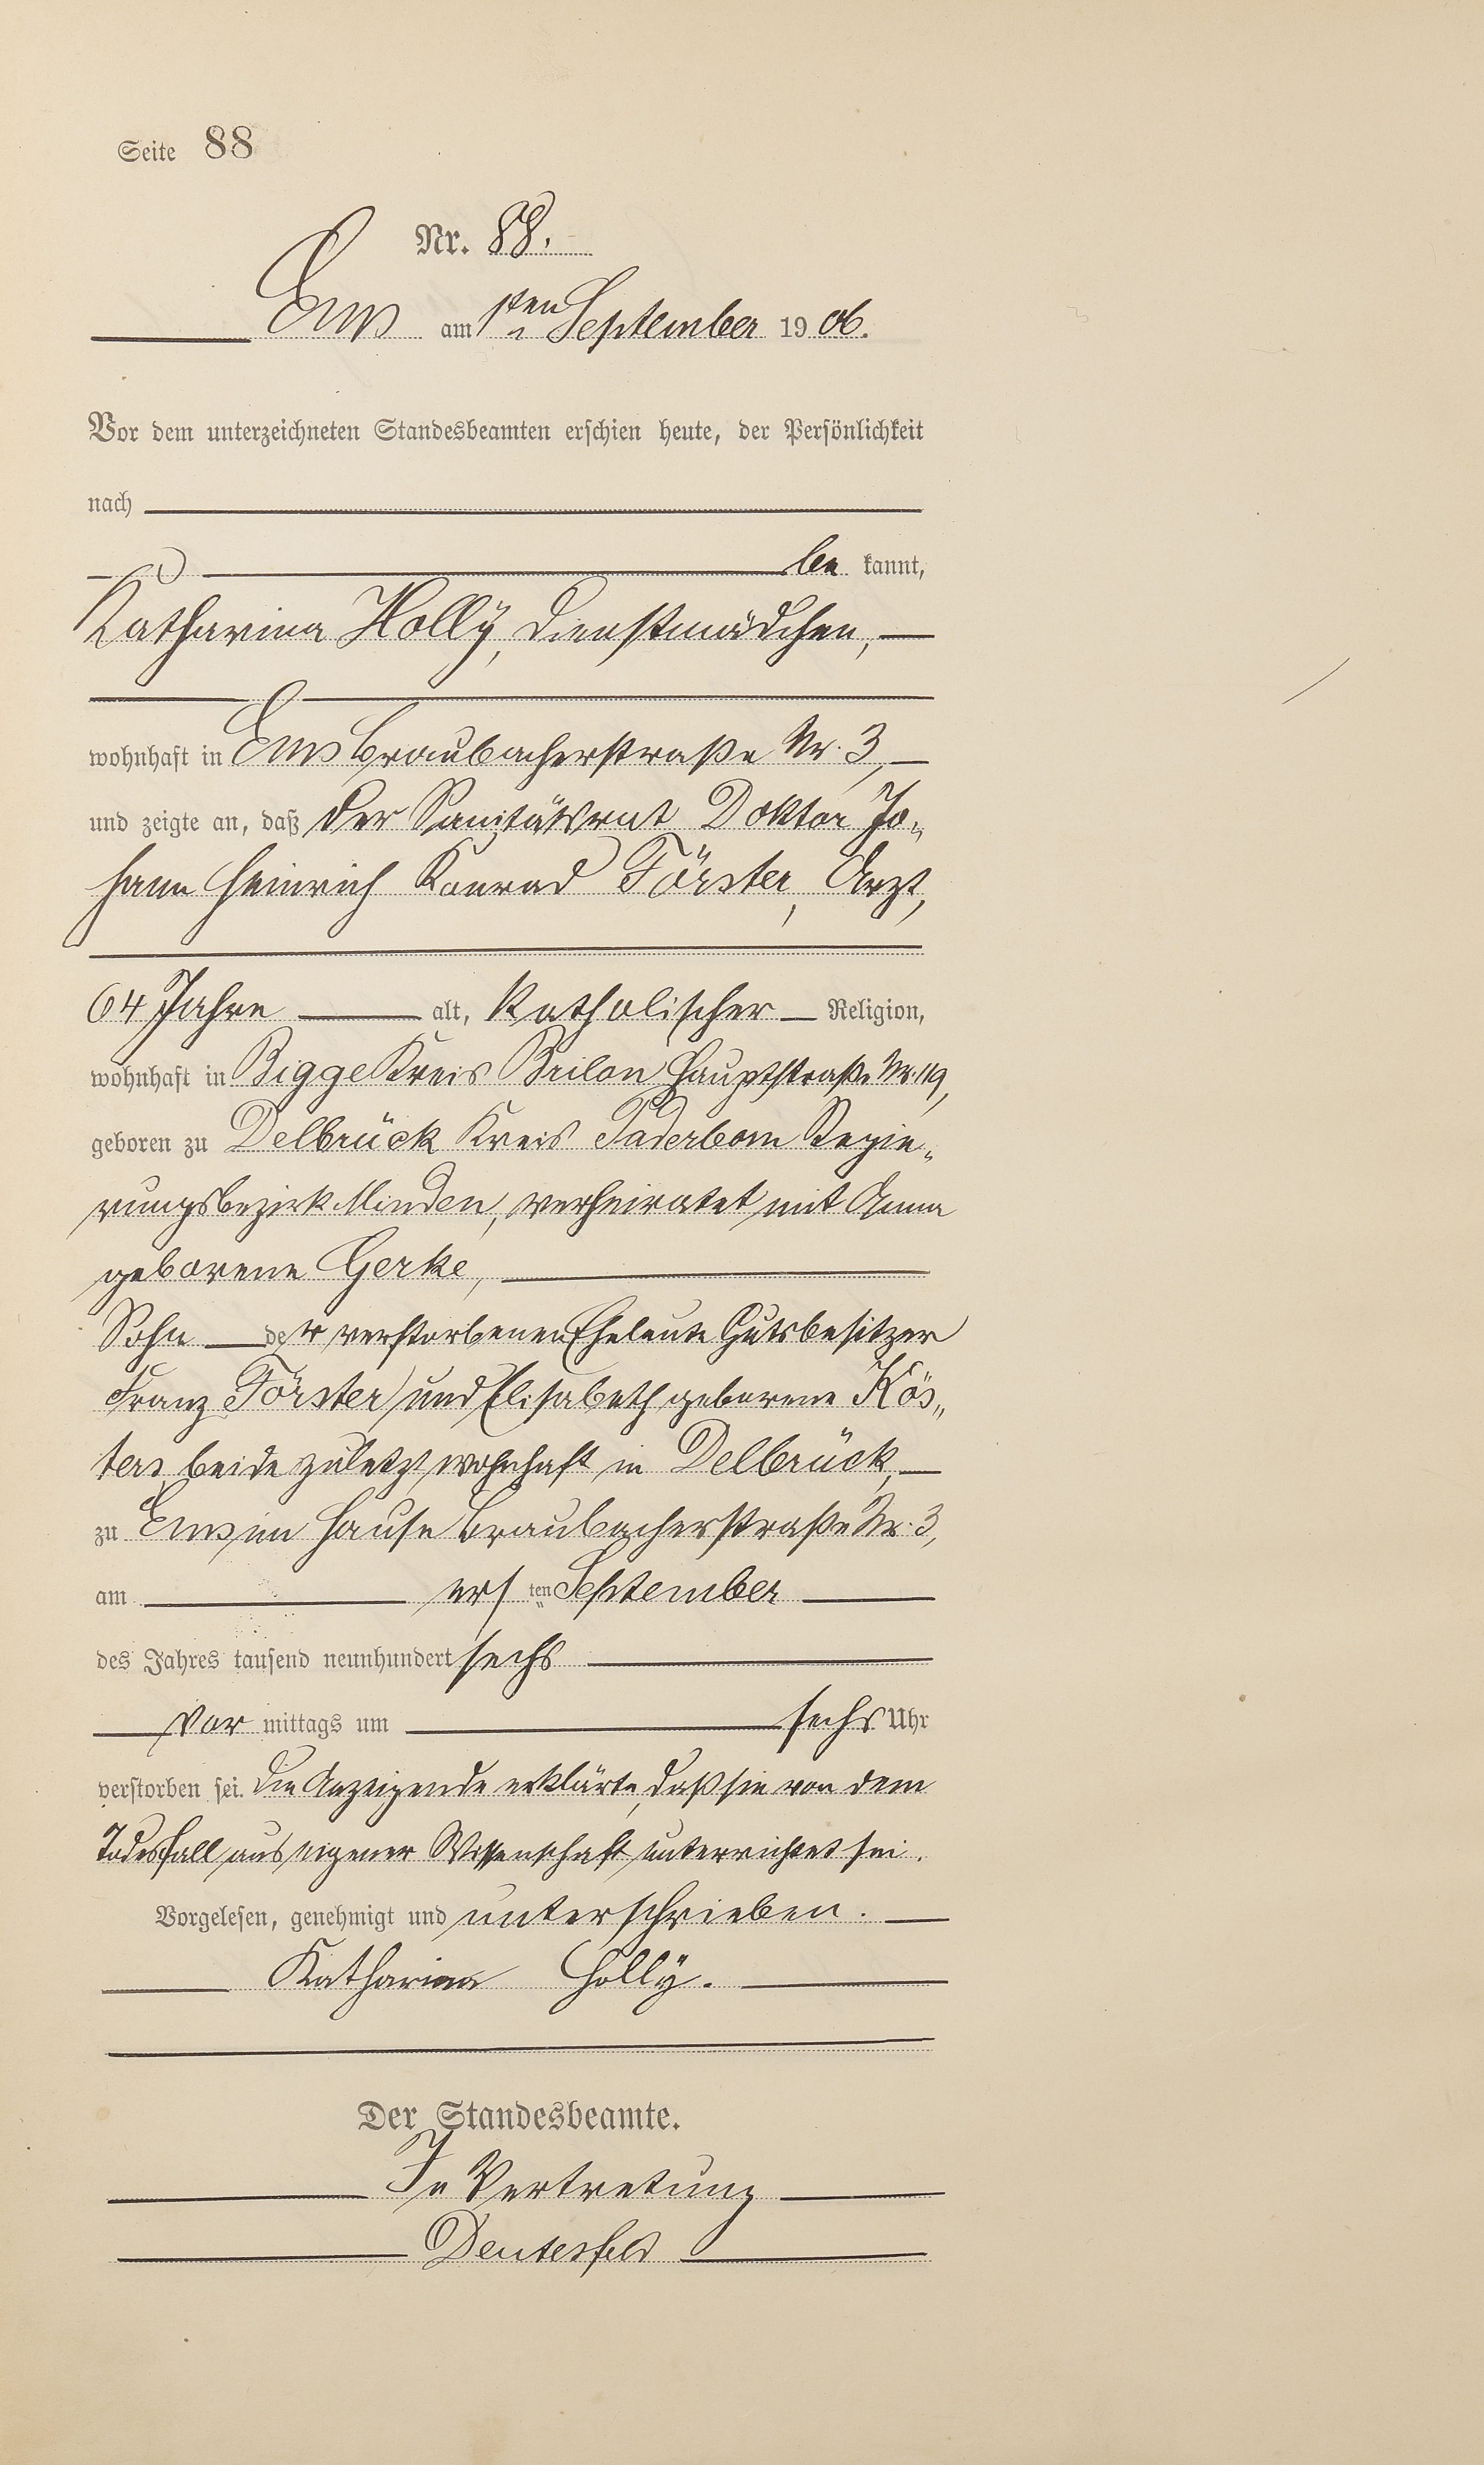 Seite 88
Nr. 88.
Ems am 1ten September 1906.
Vor dem unterzeichneten Standesbeamten erschien heute, der Persönlichkeit
nach
be kannt,
Katharina Holly, Dienstmädchen,
wohnhaft in Ems Braubacherstraße Nr. 3,
und zeigte an, daß der Sanitätsrat Doktor Jo„
hann Heinrich Konrad Förster, Arzt,
64 Jahre alt, katholischer Religion,
wohnhaft in Bigge Kreis Brilon Hauptstraße Nr. 119,
geboren zu Delbrück Kreis Paderborn Regie„
rungsbezirk Minden, verheiratet mit Anna
geborene Gerke,
Sohn der verstorbenen Eheleute Gutsbesitzer
Franz Förster und Elisabeth geborene Kös„
ters, beide zuletzt wohnhaft in Delbrück,
zu Ems im Hause Braubacherstraße Nr. 3,
am ersten September
des Jahres tausend neunhundert sechs
Vor mittags um sechs Uhr
verstorben sei. Die Anzeigende erklärte, daß sie von dem
Todesfall aus eigener Wissenschaft unterrichtet sei.
Vorgelesen, genehmigt und unterschrieben.
Katharina Holly.
Der Standesbeamte.
In Vertretung
Deutesfeld